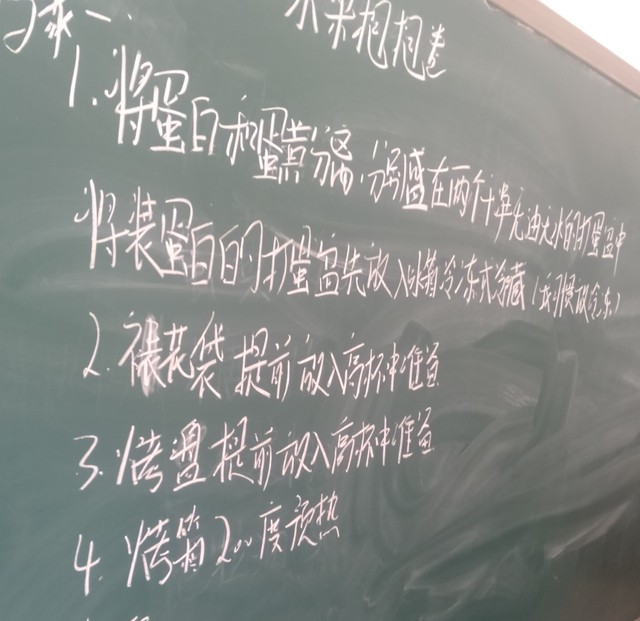 水果抱抱卷
1. 将蛋白和蛋黄分离,分别盛在两个干净无油无水的打蛋盆中
将装蛋白的打蛋盆先放入冰箱冷冻或冷藏(我习惯放冷冻)
2. 裱花袋提前放入高杯中准备
3. 烤盘提前放入高杯中准备
4. 烤箱200度预热